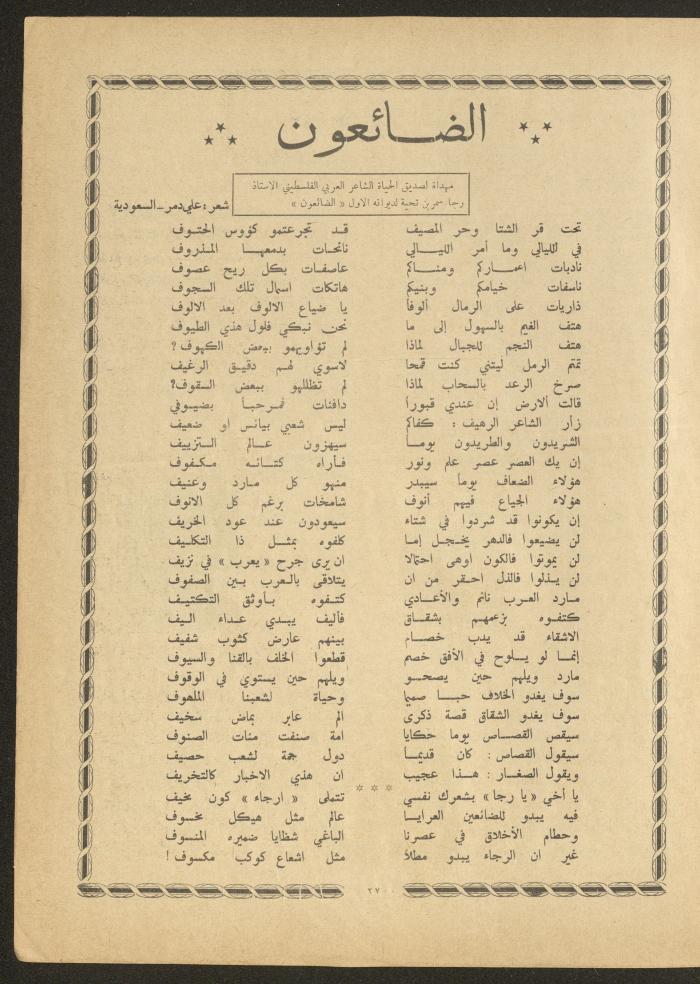 الضائعون
مهداة لصديق الحياة الشاعر العربي الفلسطيني الاستاذ
رجا سمرين تحية لديوانه الاول « الضائعون »
شعر : علي دمر ـ السعودية
تحت قر الشتا وحر المصيف قد تجرعتمو كؤوس الحتوف
في الليالي وما أمر الليالي نائحات بدمعها المذروف
نادبات اعماركم ومناكم عاصفات بكل ريح عصوف
ناسفات خيامكم وبنيكم هاتكات اسمال تلك السجوف
ذاريات على الرمال ألوفا يا ضياع الالوف بعد الالوف
هتف الغيم بالسهول إلى ما نحن نبكي فلول هذي الطيوف
هتف النجم للجبال لماذا لم تؤاويهمو ببعض الكهوف ؟
تمتم الرمل ليتني كنت قمحا لاسوي لهم دقيق الرغيف
صرخ الرعد بالسحاب لماذا لم تظلليهو ببعض السقوف؟
قالت ألارض إن عندي قبوراً دافئات فمرحباً بضيوفي
زأر الشاعر الرهيف : كفاكم ليس شعبي بيائس او ضعيف
الشريدون والطريدون يوما سيهزون عالم التزييف
إن يك العصر عصر علم ونور فأراه كتائه مكفوف
هؤلاء الضعاف يوما سيبدر منهو كل مارد وعنيف
هؤلاء الجياع فيهم أنوف شامخات برغم كل الانوف
إن يكونوا قد شردوا في شتاء سيعودون عند عود الخريف
لن يضيعوا فالدهر يخجل إما كلفوه بمثل ذا التكليف
لن يموتوا فالكون اوهى احتمالا ان يرى جرح « يعرب » في نزيف
لن يذلوا فالذل احقر من ان يتلاقى بالعرب بين الصفوف
مارد العرب نائم والأعادي كتفوه بأوثق التكتيف
كتفوه بزعمهم بشقاق فأليف يبدي عداء اليف
الاشقاء قد يدب خصام بينهم عارض كثوب شفيف
إنما لو يلوح في الأفق خصم قطعوا الخلف بالقنا والسيوف
مارد ويلهم حين يصحو ويلهم حين يستوي في الوقوف
سوف يغدو الخلاف حبا صميما وحياة لشعبنا الملهوف
سوف يغدو الشقاق قصة ذكرى الم عابر بماض سخيف
سيقص القصاص يوما حكايا امة صنفت مئات الصنوف
سيقول القصاص : كان قديماً دول جمة لشعب حصيف
ويقول الصغار : هذا عجيب ان هذي الاخبار كالتخريف
* * *
يا أخي « يا رجا » بشعرك نفسي تتملى « ارجاء » كون مخيف
فيه يبدو للضائعين العرايا عالم مثل هيكل مخسوف
وحطام الأخلاق في عصرنا الباغي شظايا ضميره المنسوف
غير ان الرجاء يبدو مطلاً مثل اشعاع كوكب مكسوف !
٢٧